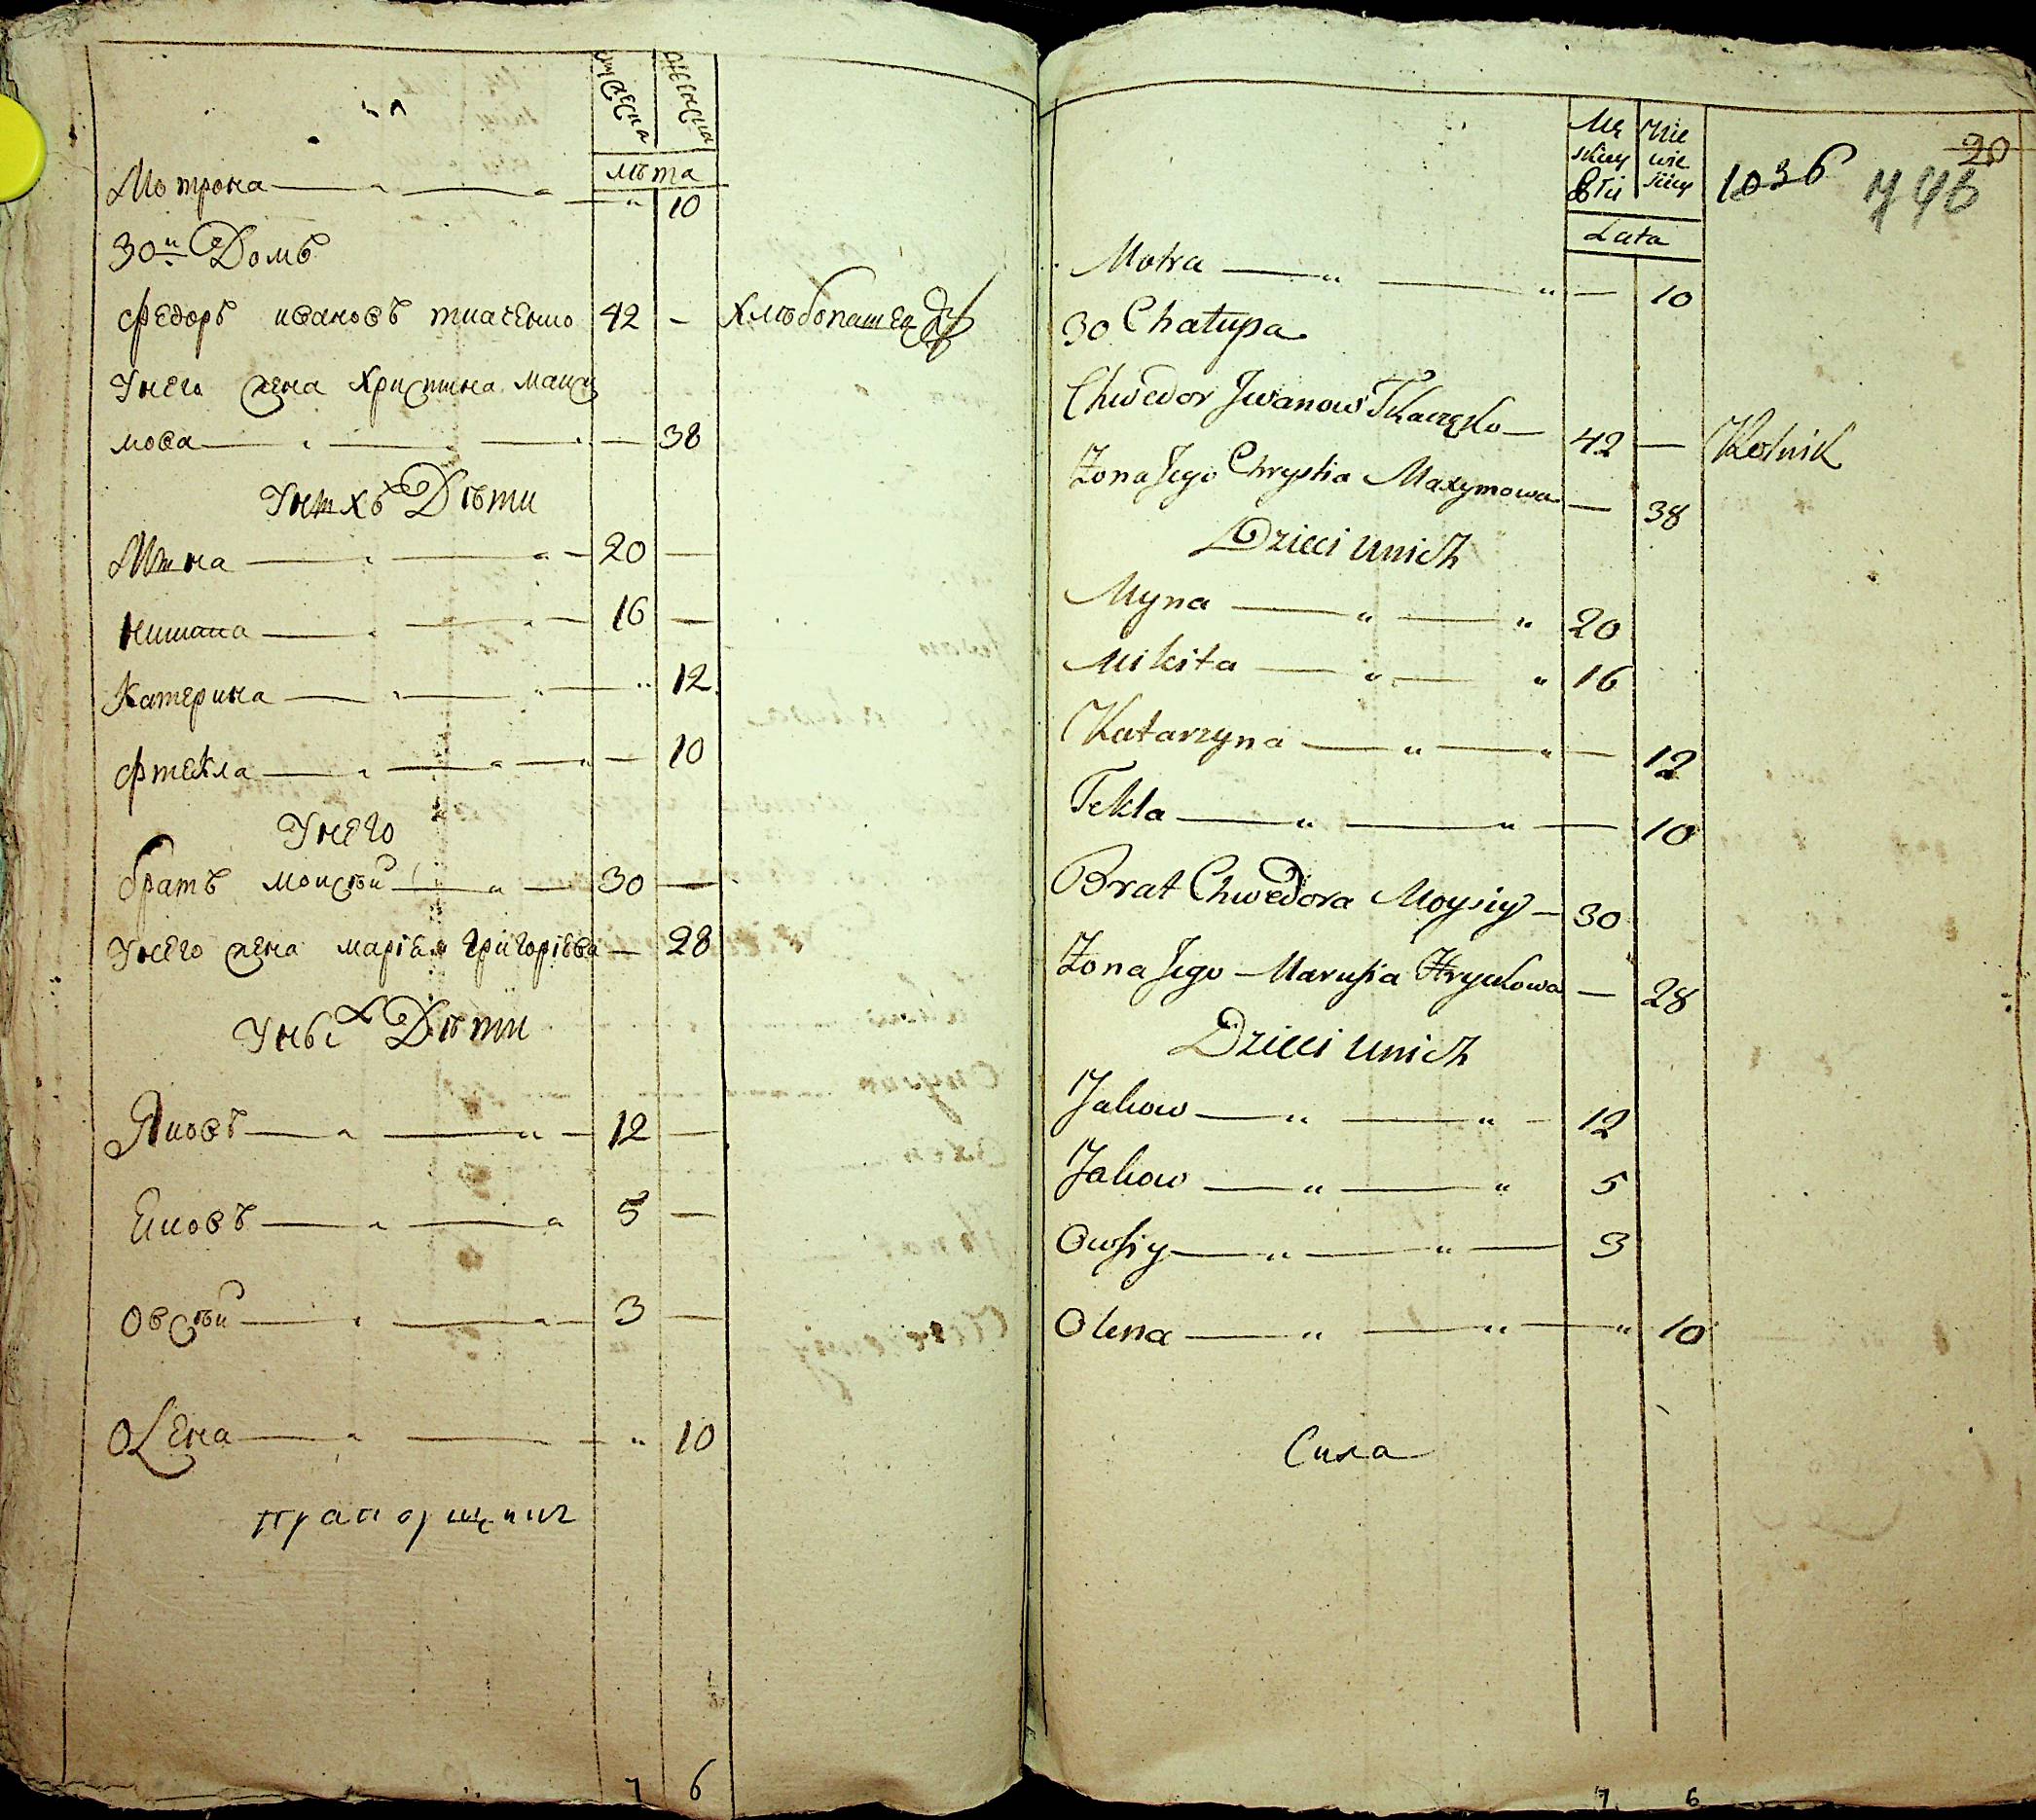 мужеска
женска
лѣта
Мотрона — — " 10
30й Домъ
Федоръ ивановъ ткаченко 42 — хлѣбопашец
Унего жена христина макси
мова — — — 38
Унихъ Дѣти
Мина — — 20 —
никита — — 16 —
Катерина — — " 12
фтекла — — — 10
Унего
братъ моисѣй — 30 —
Унего жена маріея григоріева — 28
Унихъ Дѣти
Яковъ — — 12 —
Яковъ — — 5 —
овсѣй — — 3 —
оLена — — " 10
прапорщикъ
7 6
Mę
skiey
Płci
Nie
wie
sciey
1036
20
746
Lata
Motra — " — " — 10
30 Chałupa
Chwedor Jwanow Tkaczęko — 42 — Rolnik
Żona Jego Chrystia Maxymowa — 38
Dzieci unich
Myna — " — " 20
Mikita — " — " 16
Katarzyna — " — " — 12
Tekla — " — " — 10
Brat Chwedora Moysiy — 30
Żona Jego — Marusia Hryckowa — 28
Dzieci unich
Jakow — " — " — 12
Jakow — " — " 5
Owsiy — " — " — 3
Olena — " — " — " 10
Сила
7 6